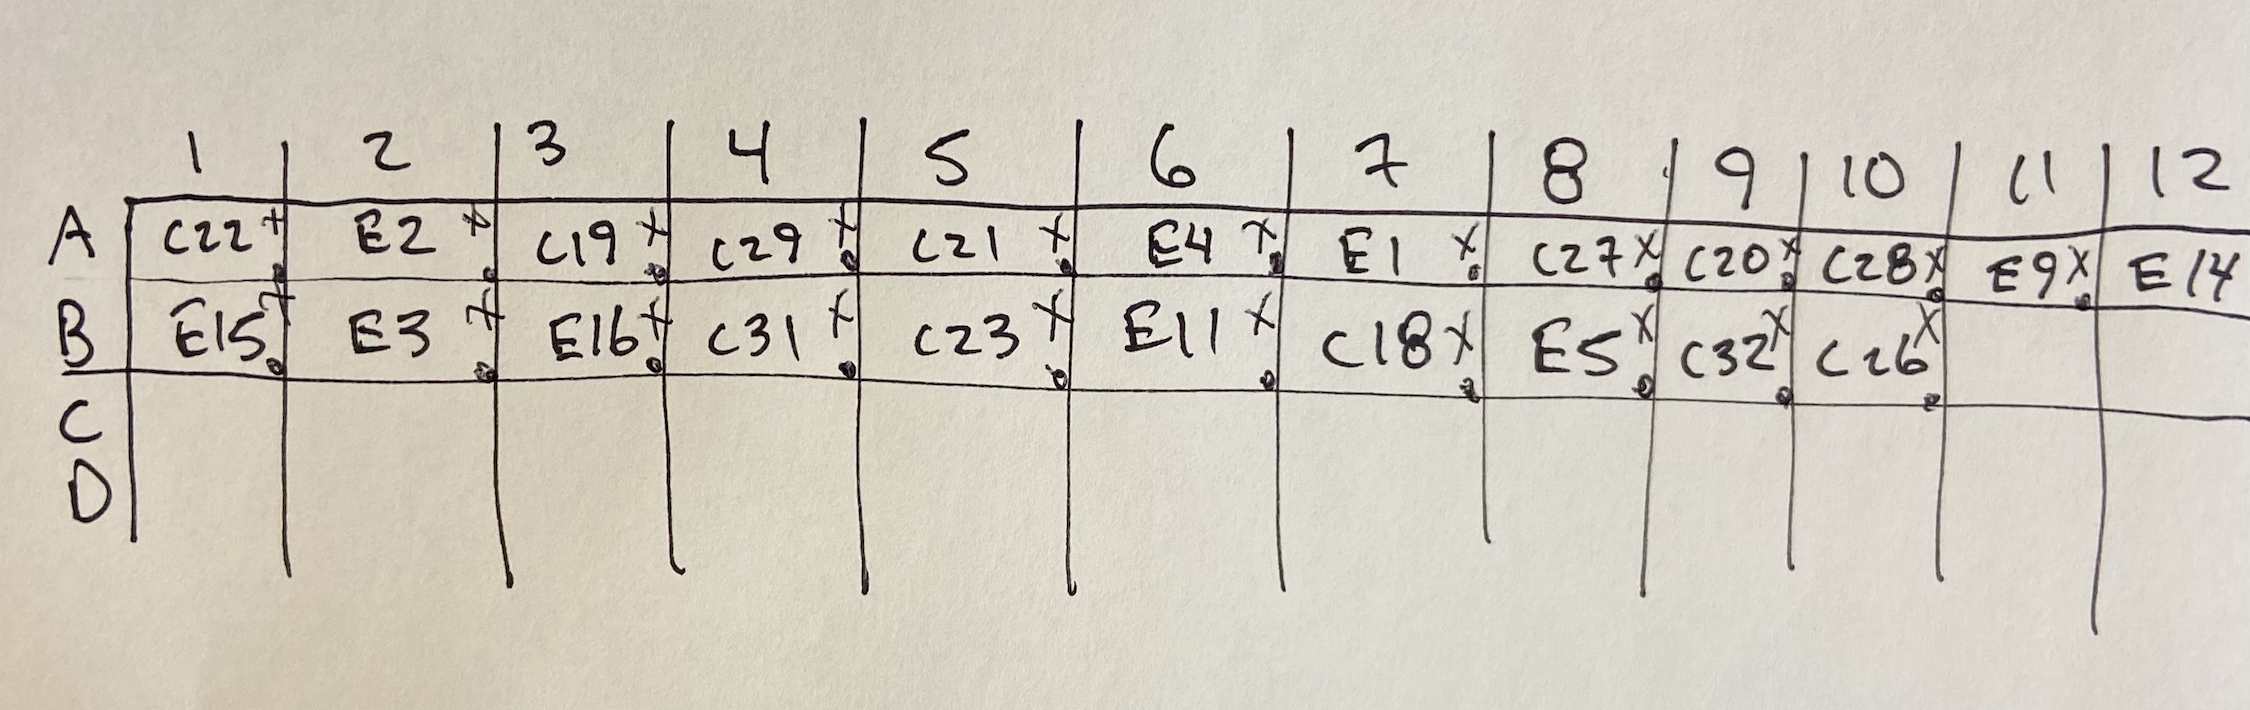 1 2 3 4 5 6 7 8 9 10 11 12
A C22 x E2 x C19 x C29 x C21 x E4 x E1 x C27 x C20 x C28 x E9 x E14
B E15 x E3 x E16 x C31 x C23 x E11 x C18 x E5 x C32 x C26 x
C
D